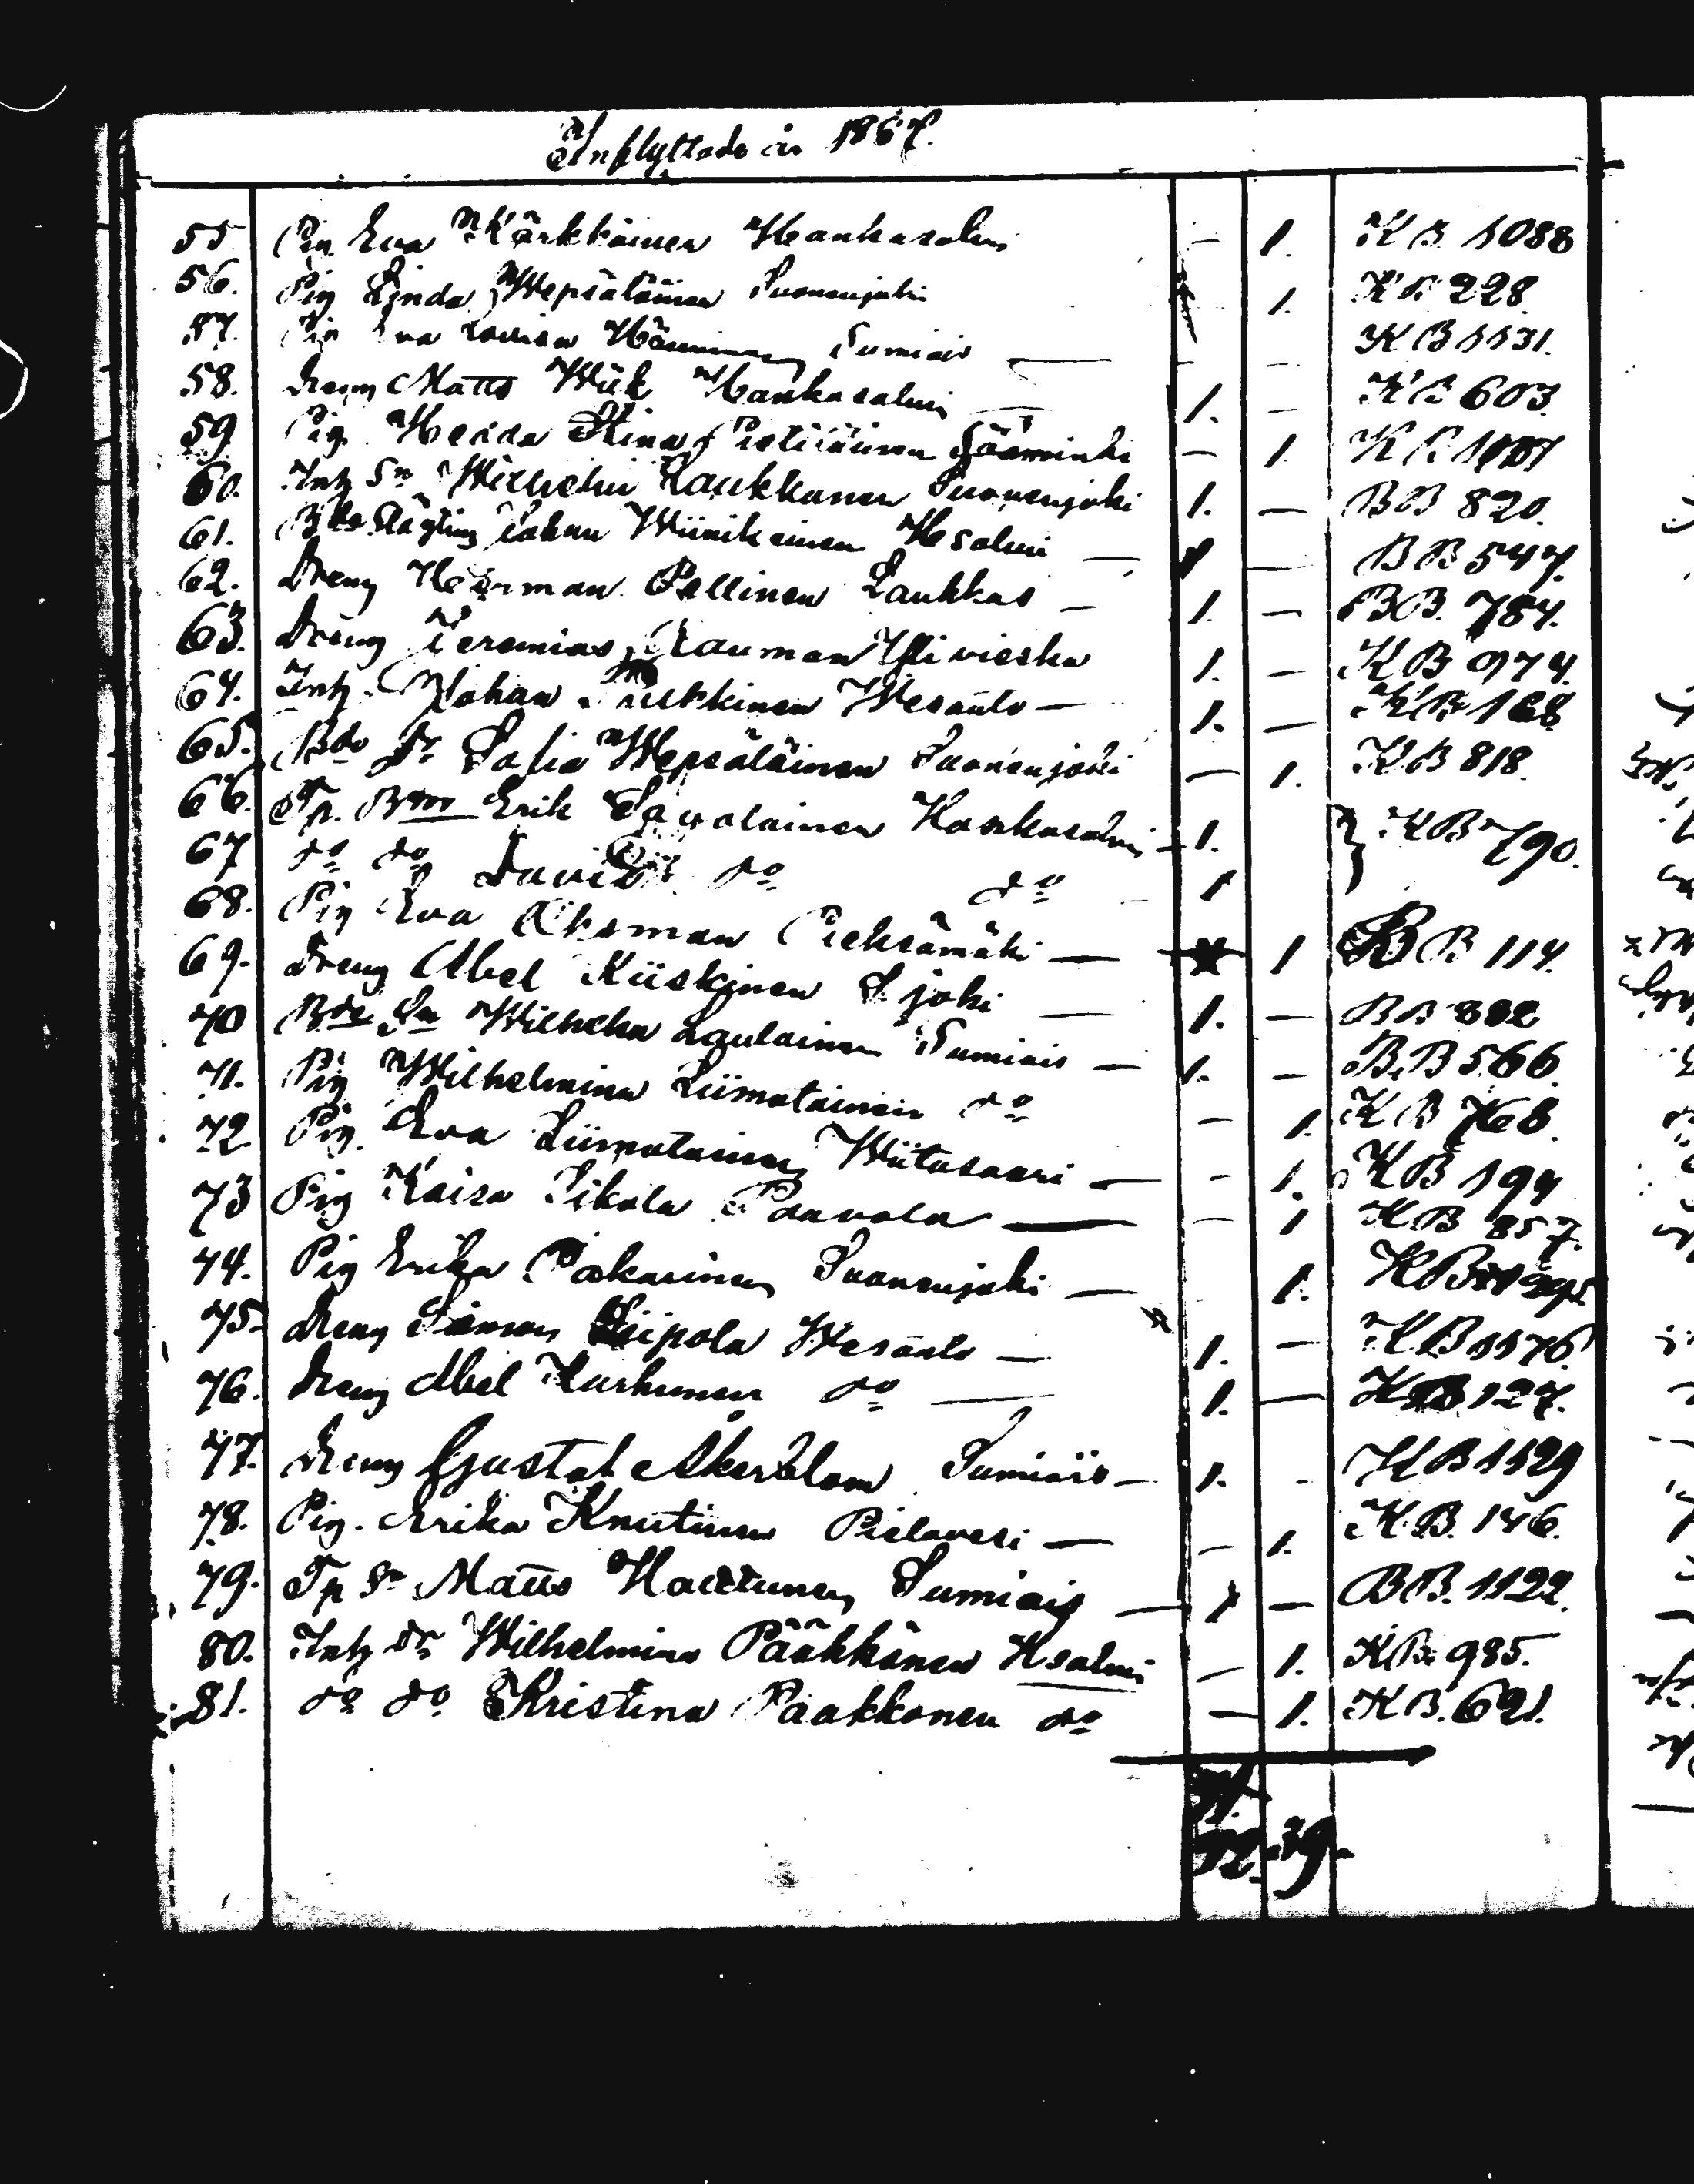 Inflyttade år 1867.
55. Pig. Eva Kärkkäinen Hankasalmi — 1. KB 1088
56. Pig Linda Wepsäläinen Suonenjoki 1. KB 228.
57. Pig Eva Lovisa Hänninen Sumiais — — — KB 1131.
58. Dreng Matts Wiik Hankasalmi — 1. — KB 603.
59 Pig. Hedda Stina Pietiläinen Sääminki — 1. KB
60. Inh Sn Wilhelm Laukkanen Suonenjoki 1. — BB 820.
61. Johan Wiinikainen Hsalmi — 1 — BB 547.
62. Dreng Herman Pellinen Laukkas — 1. — BB. 784.
63. Dreng Jeremias Rauman Ylivieska 1. — KB 974.
64. Inh. Johan Wesanto — 1. — KB 168
65. Bde Dr Sofia Wepsäläinen Suonenjoki — 1. KB 818.
66. Tp. Bm Erik Savolainen Hankasalmi — 1. } KB 790.
67 do do David do do — 1
68. Pig Eva Oksman Pieksämäki — 1 BB 114.
69. Dreng Abel Kiiskinen Sjoki — 1. — BB 882
70 Bde Sn Wilhelm Laulainen Sumiais — 1. — BB 566.
71. Pig Wilhelmina Liimatainen do — 1. KB 768.
72. Pig. Eva Liimatainen Wiitasaari — — 1. KB 194
73 Pig Kaisa Sikala Paavola — — 1 KB 857.
74. Pig Erika Pakarinen Suonenjoki — 1. KB
75. Dreng Simon Siipola Wesanto — 1. — KB 1176.
76. Dreng Abel Karhunen do — 1. — KB 127.
77. Dreng Gustaf Åkerblom Sumiais — 1. - KB 1129
78. Pig. Erika Knutinen Pielavesi — — 1. KB. 146.
79. Tp Sn Matts Hauttunen Sumiais — 1 — BB. 1122.
80. Inh dr Wilhelmina Pääkkönen Hsalmi — 1. KB 985.
81. do do Kristina Paakkonen do — 1. KB. 621.
39.